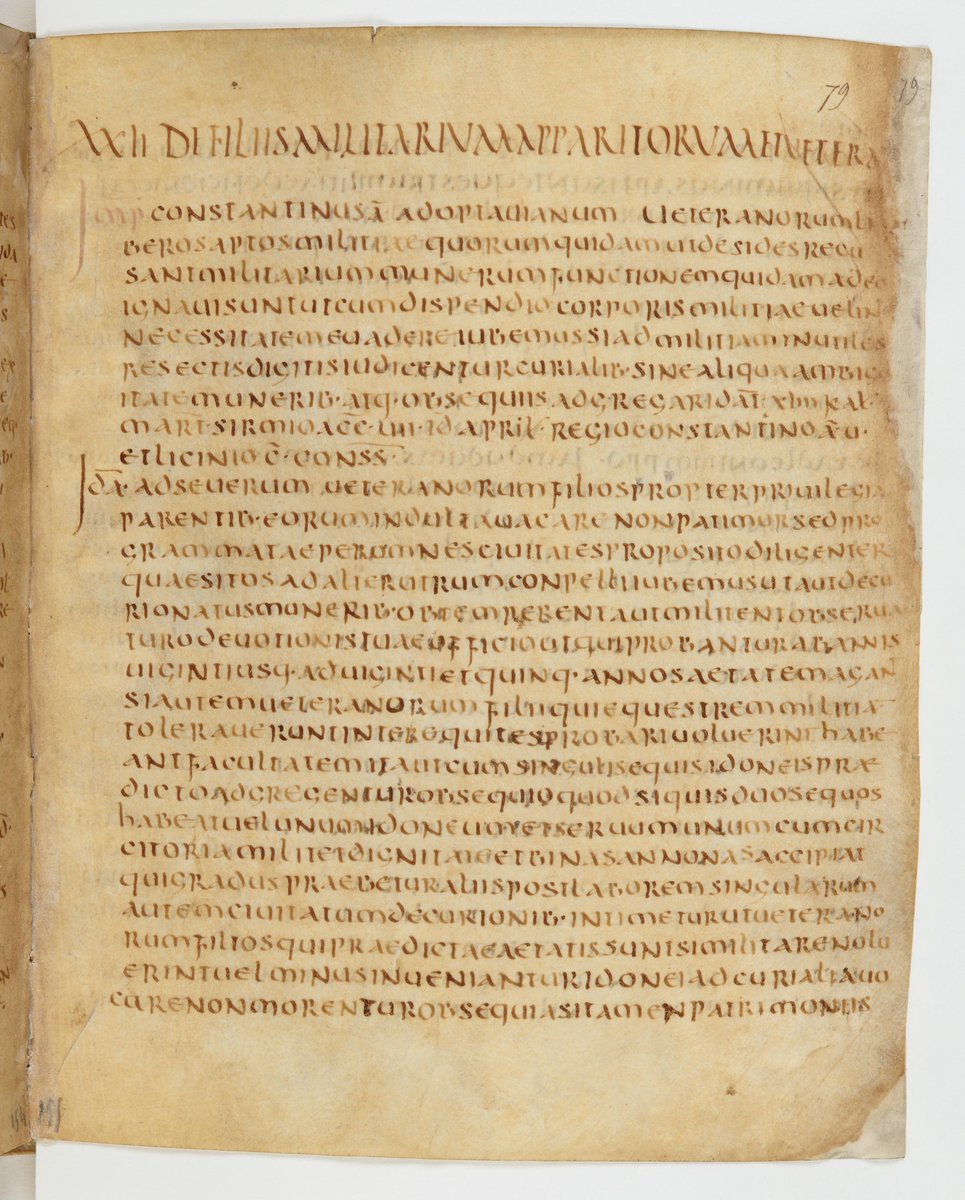 79 79
XXII DE FILIIS MILITARIUM APPARITORUM ET UETERA
IMP CONSTANTINUS Ā AD OCTAUIANUM UETERANORUM LI
BEROS APTOS MILITIAE QUORUM QUIDAM UT DESIDES RECU
SANT MILITARIUM MUNERUM FUNCTIONEM QUIDAM ADEO
IGNAUI SUNT UT CUM DISPENDIO CORPORIS MILITIAE UELINT
NECESSITATEM EUADERE IUBEMUS SI AD MILITIAM INUTILES
RESECTIS DIGITIS IUDICENTUR CURIALIB· SINE ALIQUA AMBIGU
ITATE MUNERIB· ATQ· OBSEQUIIS ADGREGARI DAT̄ XIIII KAL·
MART· SIRMIO ACC̄ IIII· ID APRIL· REGIO CONSTANTINO Ā U·
ET LICINIO C̄· CONSS̄
IDĀ· AD SEUERUM UETERANORUM FILIOS PROPTER PRIUILEGIA
PARENTIB· EORUM INDULTA UACARE NON PATIMUR SED PRO
GRAMMATAE PER OMNES CIUITATES PROPOSITO DILIGENTER
QUAESITOS AD ALTERUTRUM CONPELLI IUBEMUS UT AUT DECU
RIONATUS MUNERIB· OBTEMPERENT AUT MILITENT OBSERUA
TURO DEUOTIONIS TUAE OFFICIO UT QUI PROBANTUR AB ANNIS
UIGINTI USQ· AD UIGINTI ET QUINQ· ANNOS AETATEM AGANT
SI AUTEM UETERANORUM FILII QUI EQUESTREM MILITIĀ
TOLERAUERUNT INTER EQUITES PROBARI UOLUERINT HABE
ANT FACULTATEM ITA UT CUM SINGULIS EQUIS IDONEIS PRAE
DICTO ADGREGENTUR OBSEQUIO QUOD SI QUIS DUOS EQUOS
HABEAT UEL UNUM IDONEUM ET SERUUM UNUM CUM CIR
CITORIA MILITET DIGNITATE ET BINAS ANNONAS ACCIPIAT
QUI GRADUS PRAEBETUR ALIIS POST LABOREM SINGULARUM
AUTEM CIUITATUM DECURIONIB· INTIMETUR UT UETERANO
RUM FILIOS QUI PRAEDICTAE AETATIS SUNT SI MILITARE NOLU
ERINT UEL MINUS INUENIANTUR IDONEI AD CURIALIA UO
CARE NON MORENTUR OBSEQUIA SI TAMEN PATRIMONIIS